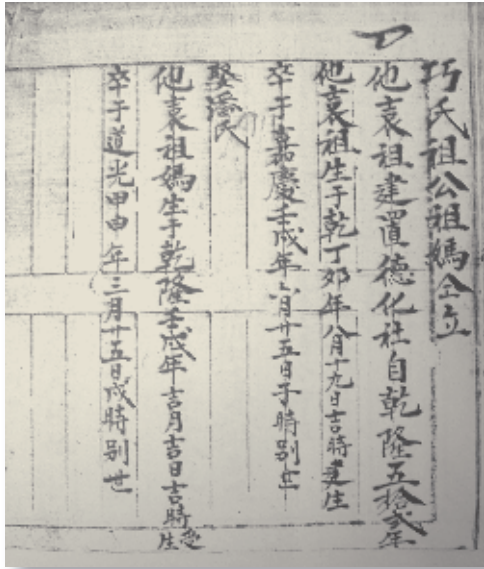 巧氏祖公祖媽仝立
他裏祖建置德化社自乾隆五拾貳年
他裏祖生于乾丁卯年八月十九日吉時建生
卒于嘉慶壬戌年六月廿五日子時別世
娶潘氏
他裏祖媽生于乾隆壬戌年吉月吉日吉時受生
卒于道光甲申年三月廿五日戌時別世